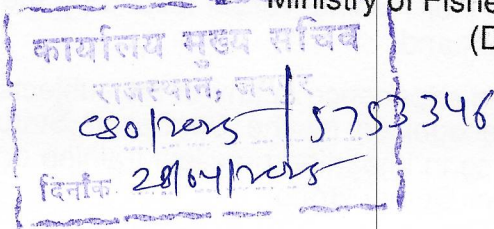 Ministry of Fishe
(D
कार्यालय मुख्य सचिव
राजस्थान, जयपुर
CSO/2025/5753346
दिनांक 28/04/2025